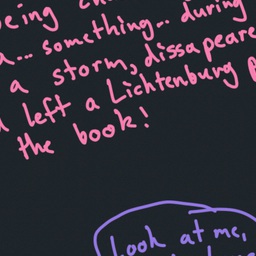 being
a... something... during
a storm, dissapeare
left a Lichtenburg
the book!
Look at me,